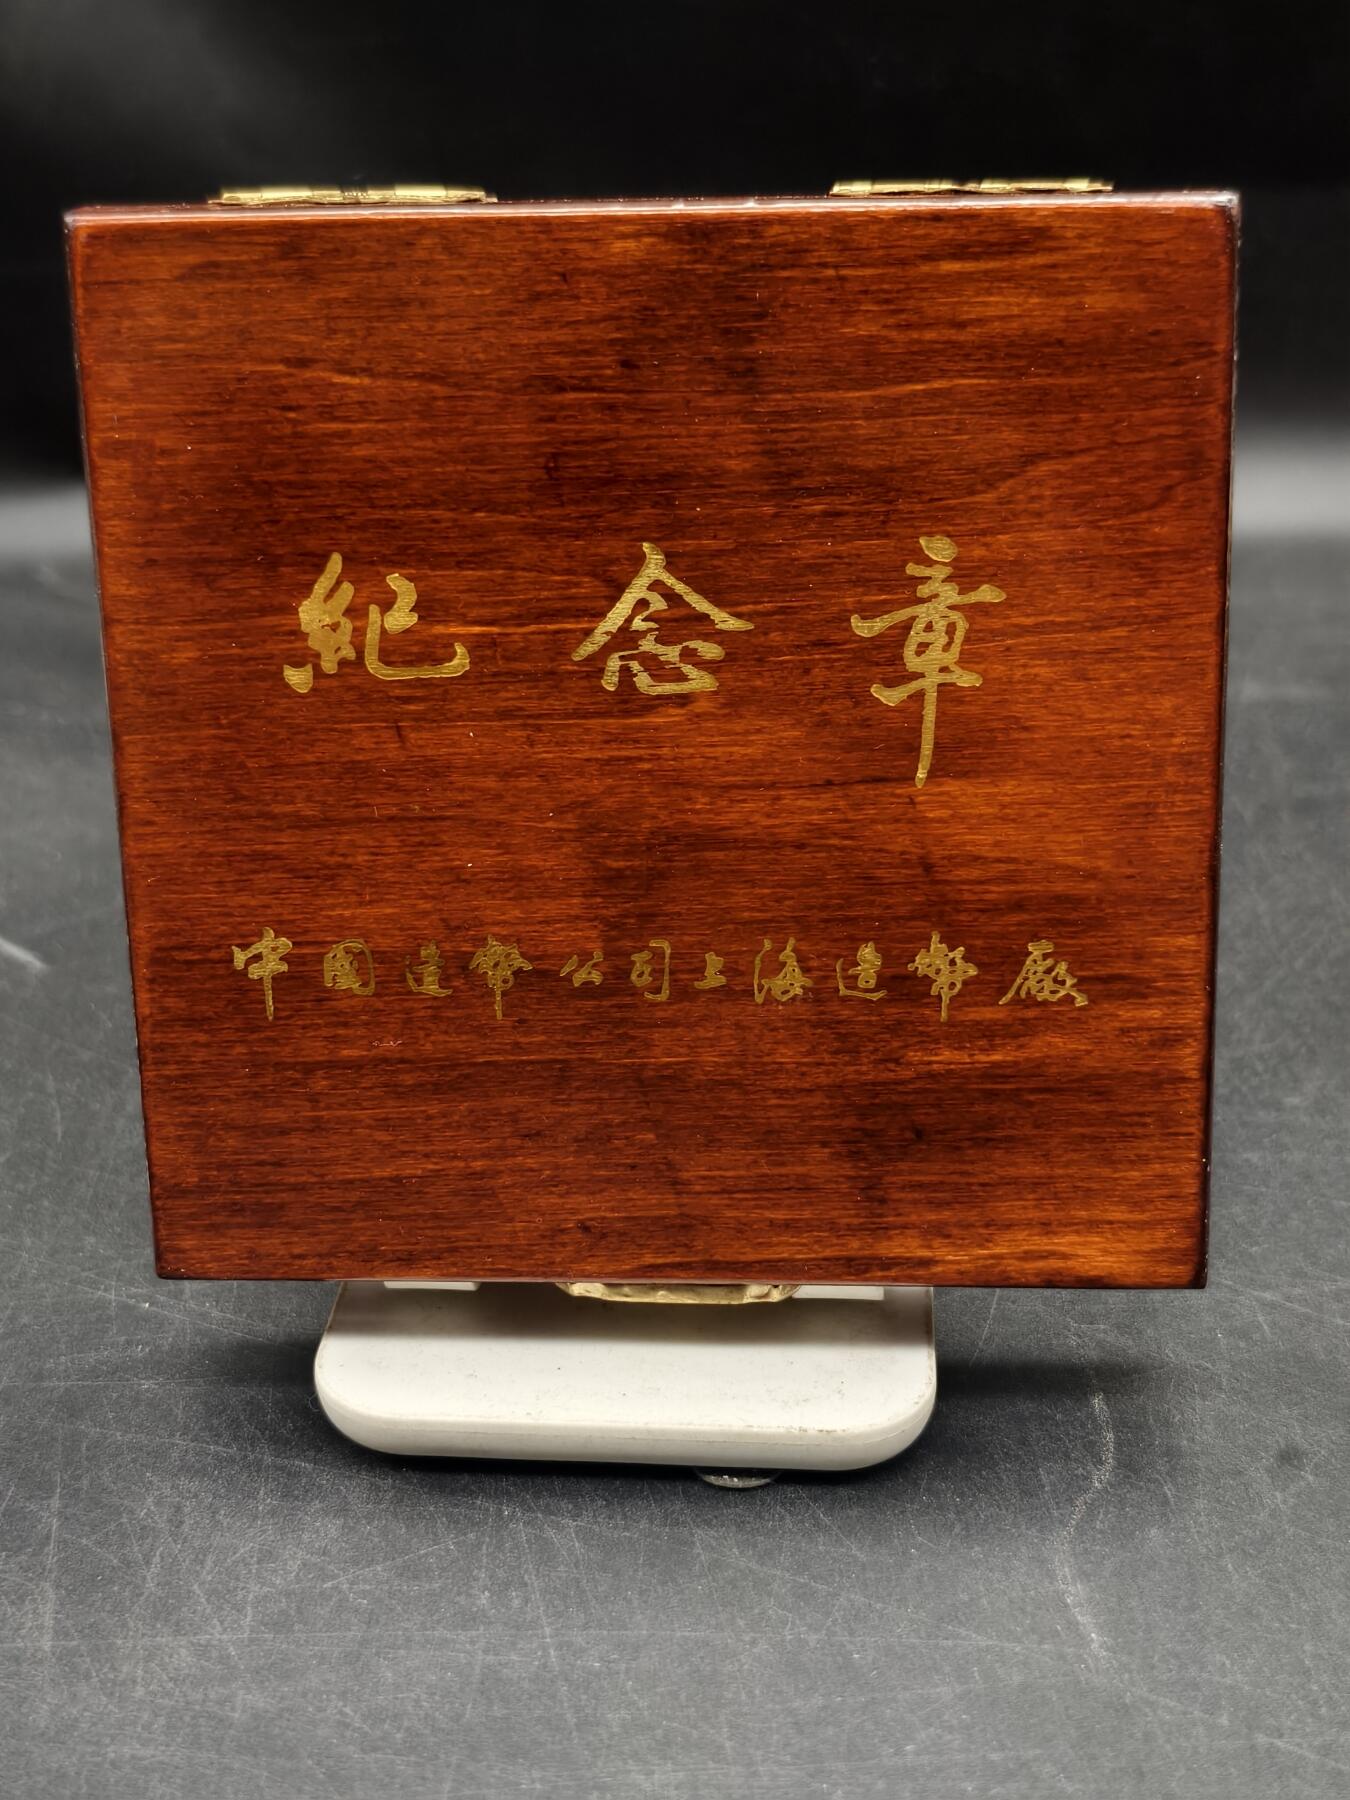 紀念章
中國造幣公司上海造幣廠